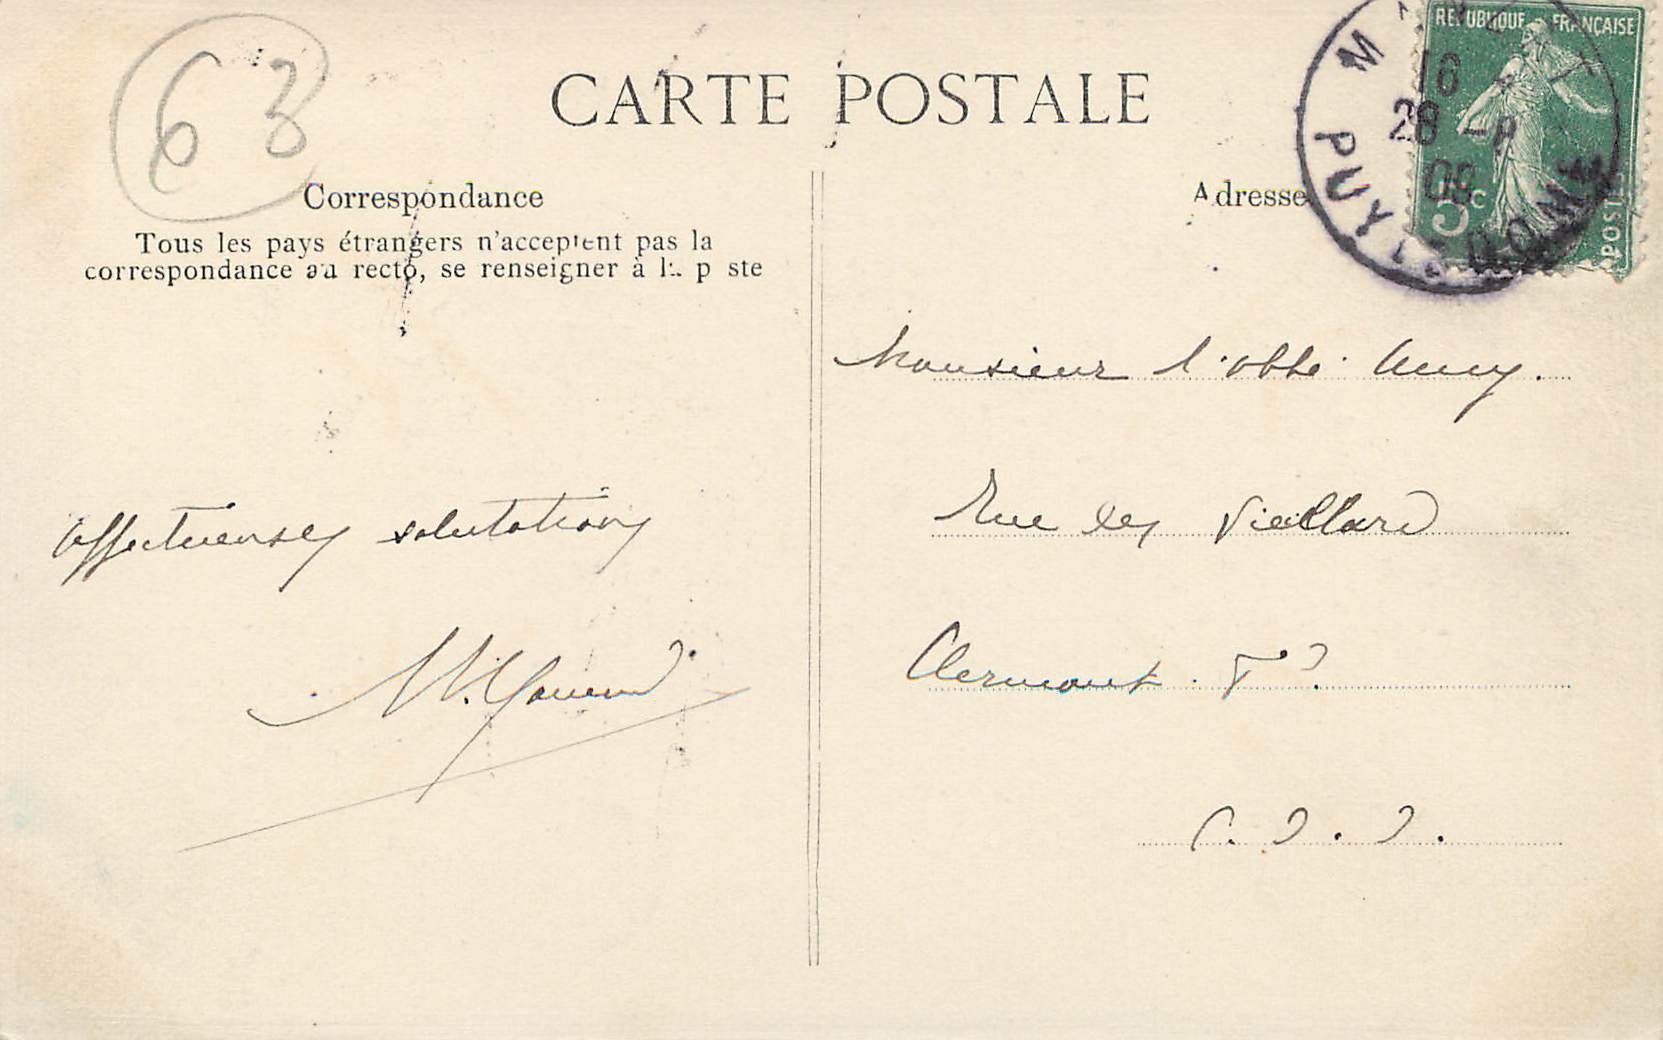 63
CARTE POSTALE
RÉPUBLIQUE FRANÇAISE
5c
POSTES
PUY-DE-DOME
16
28 -8
08
Correspondance
Adresse
Tous les pays étrangers n'acceptent pas la
correspondance au recto, se renseigner à la poste
Monsieur l'abbé
Rue des Vieillard
Clermont-Fd.
P. D. D.
affectueuses salutations